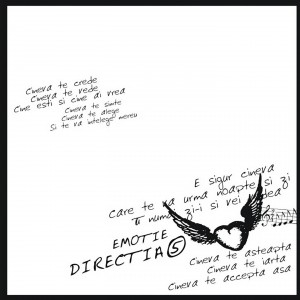 Cineva te crede
Cineva te vede
Cine esti si cine ai vrea
Cineva te simte
Cineva te alege
Si te va intelege mereu
E sigur cineva
Care te va urma noapte si zi
Tu numa zi-i si vei vedea
EMOTIE
DIRECTIA 5
Cineva te asteapta
Cineva te iarta
Cineva te accepta asa